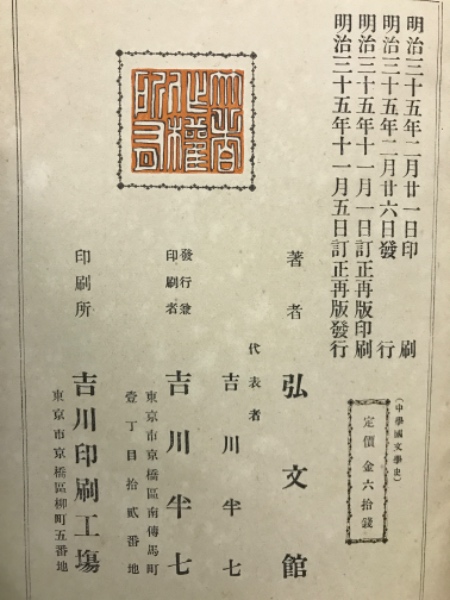 明治三十五年二月廿一日印刷
明治三十五年二月廿六日發行
明治三十五年十一月一日訂正再版印刷
明治三十五年十一月五日訂正再版發行
(中學國文學史)
定價金六拾錢
著者 弘文館
代表者 吉川半七
發行兼
印刷者 吉川半七
東京市京橋區南傳馬町
壹丁目拾貳番地
印刷所 吉川印刷工場
東京市京橋區柳町五番地